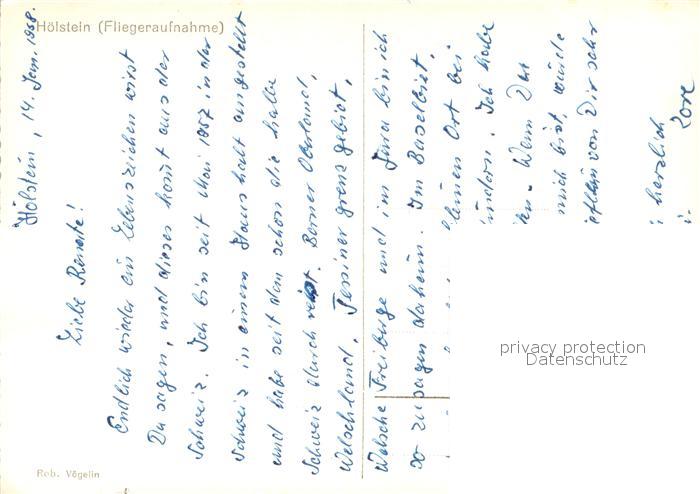 Hölstein (Fliegeraufnahme)
Hölstein, 14. Jan. 1958.
Liebe Renate!
Endlich wieder ein Lebenszeichen wirst
Du sagen, und dieses kommt aus der
Schweiz. Ich bin seit Mai 1957 in der
Schweiz in einem Haushalt angestellt
und habe seit dem schon die halbe
Schweiz durch reist. Berner Oberland,
Welschland, Tessiner grenzgebiet,
Welsche Freiberge und im Jura bin ich
so zusagen daheim. Im Baselbiet,
kleinen Ort bei
Ich habe
Wenn Du
mich bist, würde
von Dir sehr
herzlich
Lore
Rob. Vögelin
privacy protection
Datenschutz